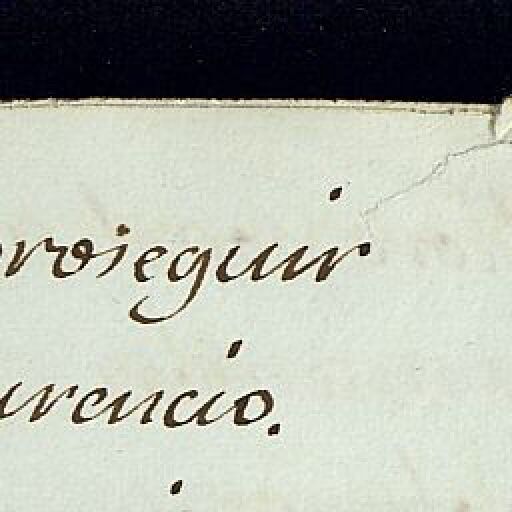 proseguir
urencio.